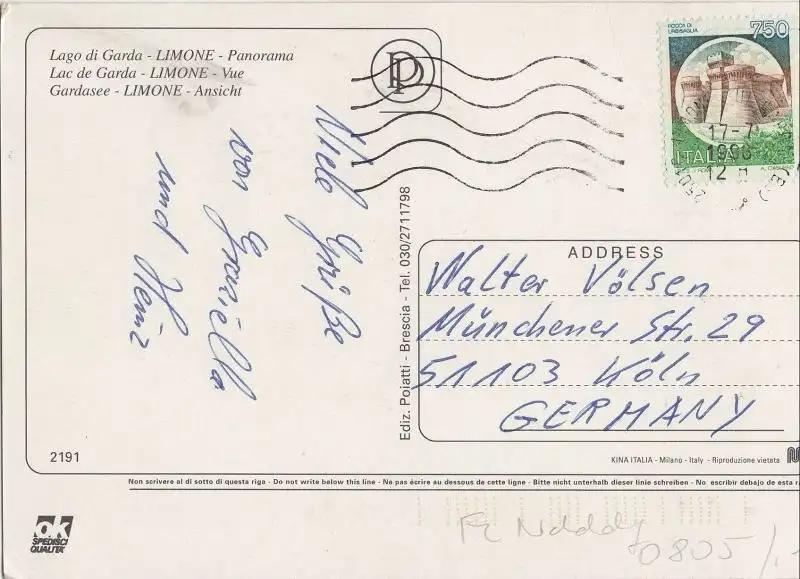 Lago di Garda - LIMONE - Panorama
Lac de Garda - LIMONE - Vue
Gardasee - LIMONE - Ansicht
ROCCA DI
URBISAGLIA
750
ITALIA
17-7
12
Viele Grüße
von
und Heinz
Ediz. Poiatti - Brescia - Tel. 030/2711798
ADDRESS
Walter Völsen
Münchener Str. 29
51103 Köln
GERMANY
2191
KINA ITALIA - Milano - Italy - Riproduzione vietata
Non scrivere al di sotto di questa riga - Do not write below this line - Ne pas écrire au dessous de cette ligne - Bitte nicht unterhalb dieser linie schreiben - No escribir debajo de esta
ok
SPEDISCI
QUALITA'
0805/